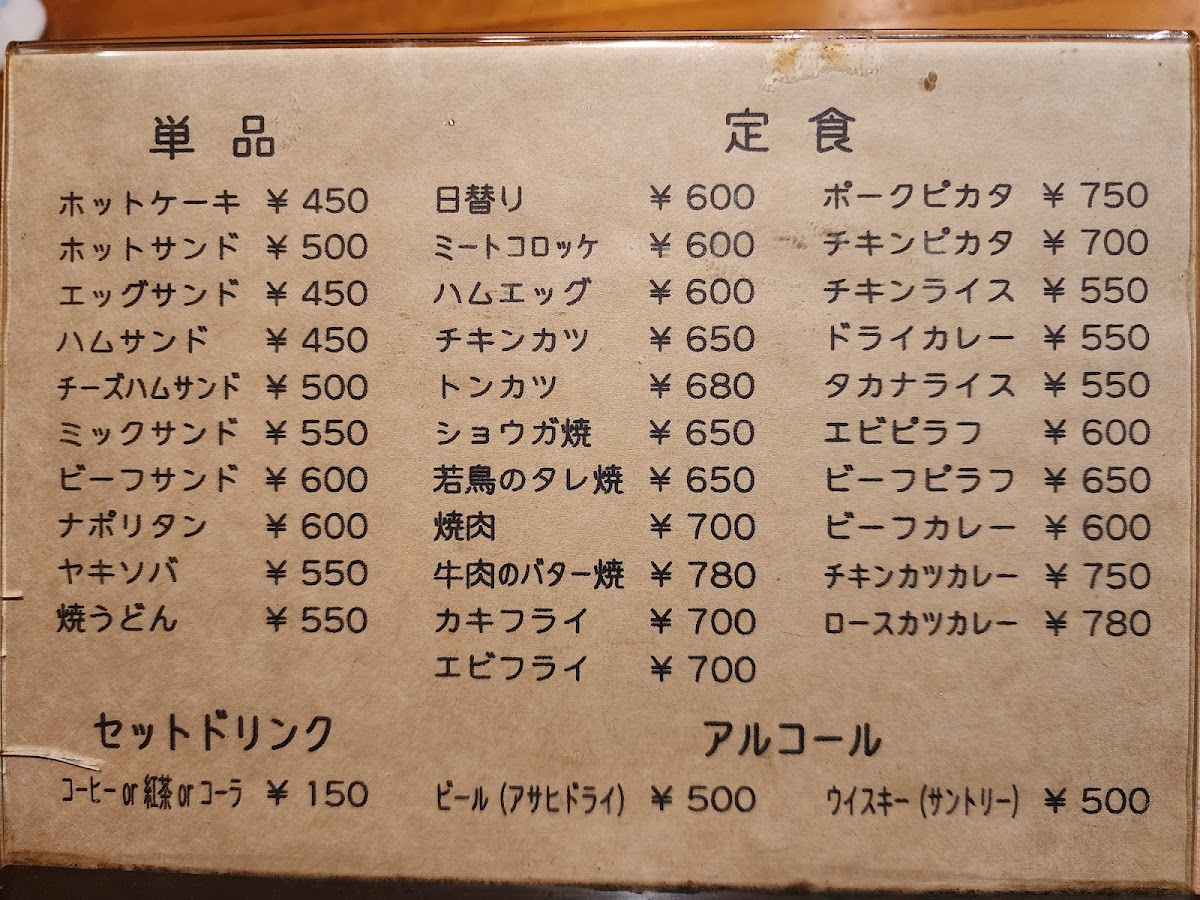 単品
ホットケーキ ¥450
ホットサンド ¥500
エッグサンド ¥450
ハムサンド ¥450
チーズハムサンド ¥500
ミックサンド ¥550
ビーフサンド ¥600
ナポリタン ¥600
ヤキソバ ¥550
焼うどん ¥550
定食
日替り ¥600
ミートコロッケ ¥600
ハムエッグ ¥600
チキンカツ ¥650
トンカツ ¥680
ショウガ焼 ¥650
若鳥のタレ焼 ¥650
焼肉 ¥700
牛肉のバター焼 ¥780
カキフライ ¥700
エビフライ ¥700
ポークピカタ ¥750
チキンピカタ ¥700
チキンライス ¥550
ドライカレー ¥550
タカナライス ¥550
エビピラフ ¥600
ビーフピラフ ¥650
ビーフカレー ¥600
チキンカツカレー ¥750
ロースカツカレー ¥780
セットドリンク
コーヒー or 紅茶 or コーラ ¥150
アルコール
ビール (アサヒドライ) ¥500
ウイスキー (サントリー) ¥500